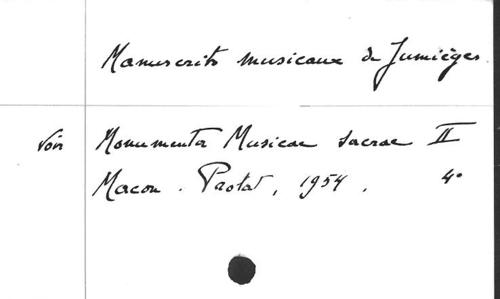 Manuscrits musicaux de Jumièges.
Voir Monumenta Musicae Sacrae II
Macon. Protat, 1954. 4°